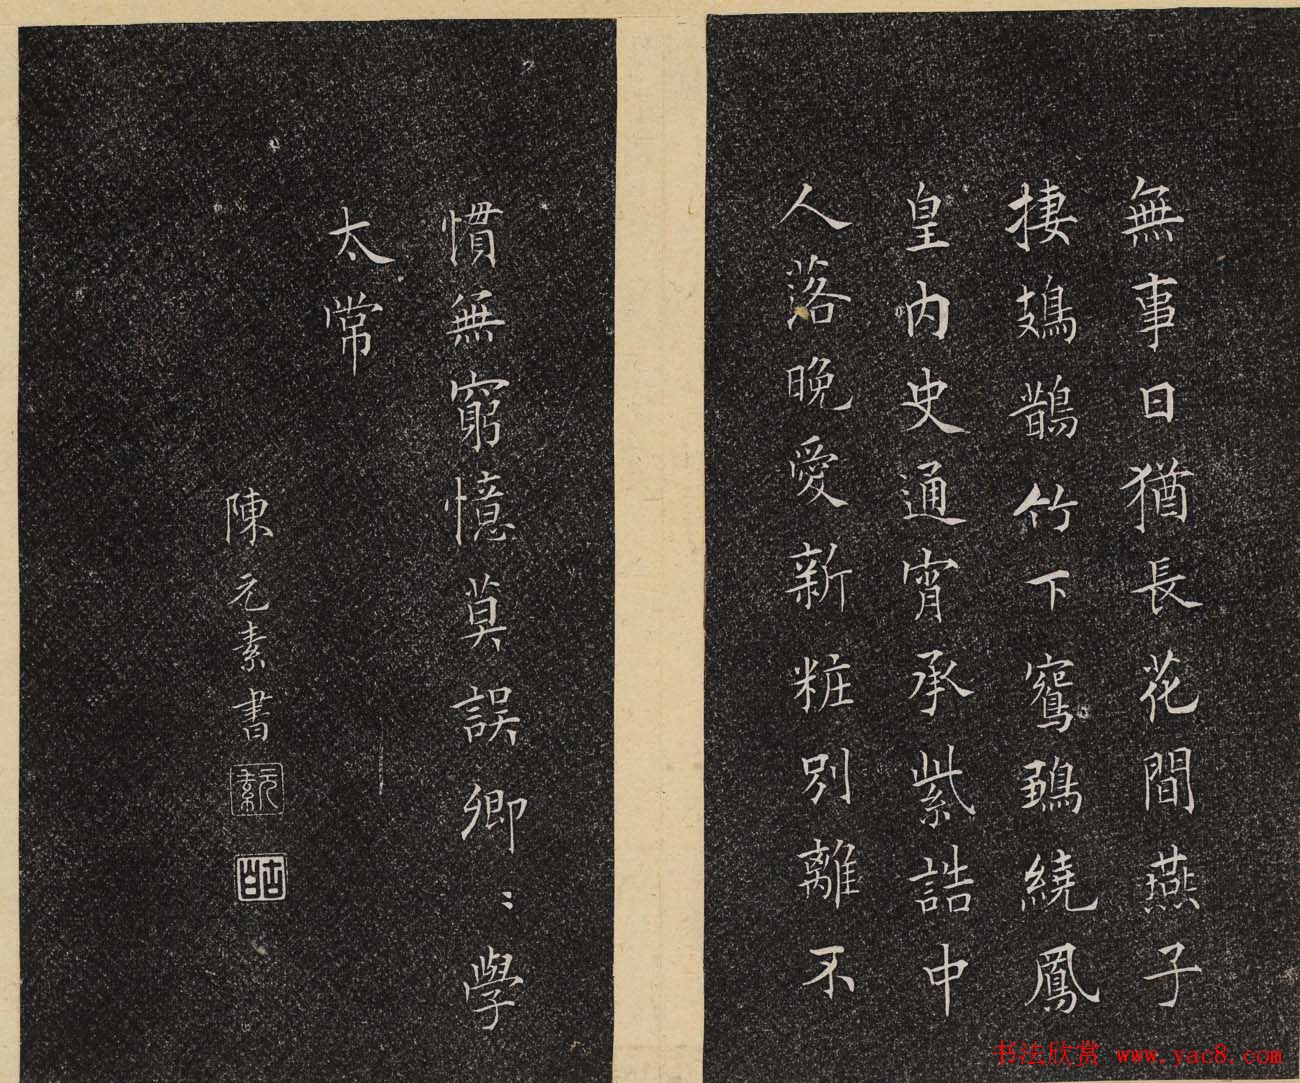 無事日猶長花間燕子
捿鳷鵲竹下鵷鶵繞鳳
皇内史通宵承紫誥中
人落晚愛新粧別離不
慣無窮憶莫誤卿〻學
太常
陳元素書
元素
古白
书法欣赏 www.yac8.com